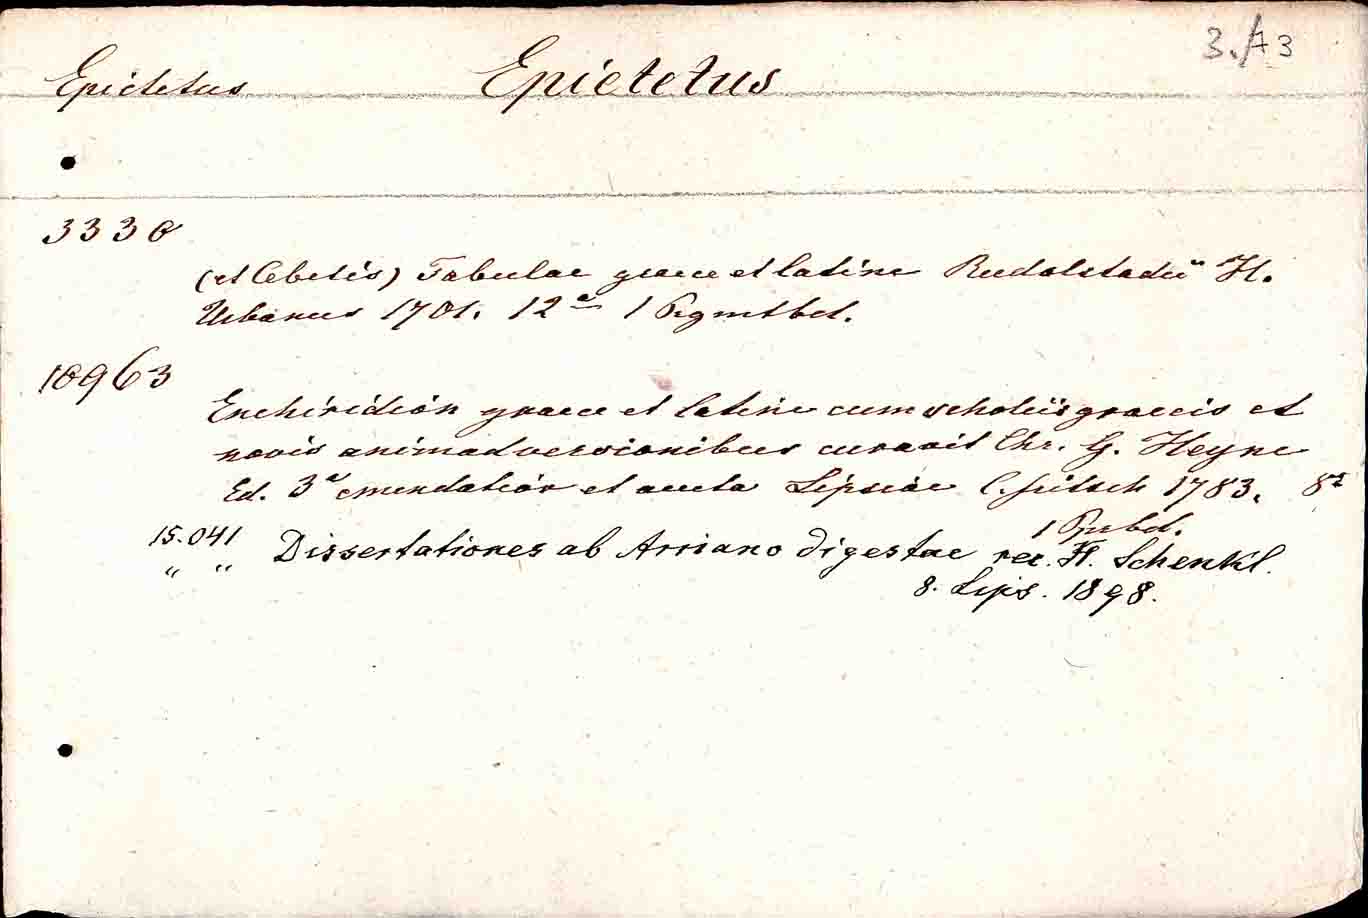 3./A3
Epictetus Epictetus
3330
(et Cebetis) Tabulae graece et latine Rudolstadii H.
Urbanus 1701. 12° 1 Prgmtbd.
10963
Enchiridion graece et latine cum scholiis graecis et
novis animadversionibus curavit Chr. G. Heyne
Ed. 3a emendatior et aucta Lipsiae C. Fritsch 1783. 8°
1 Pprbd.
15.041 Dissertationes ab Arriano digestae rec. H. Schenkl.
" " 8. Lips. 1898.